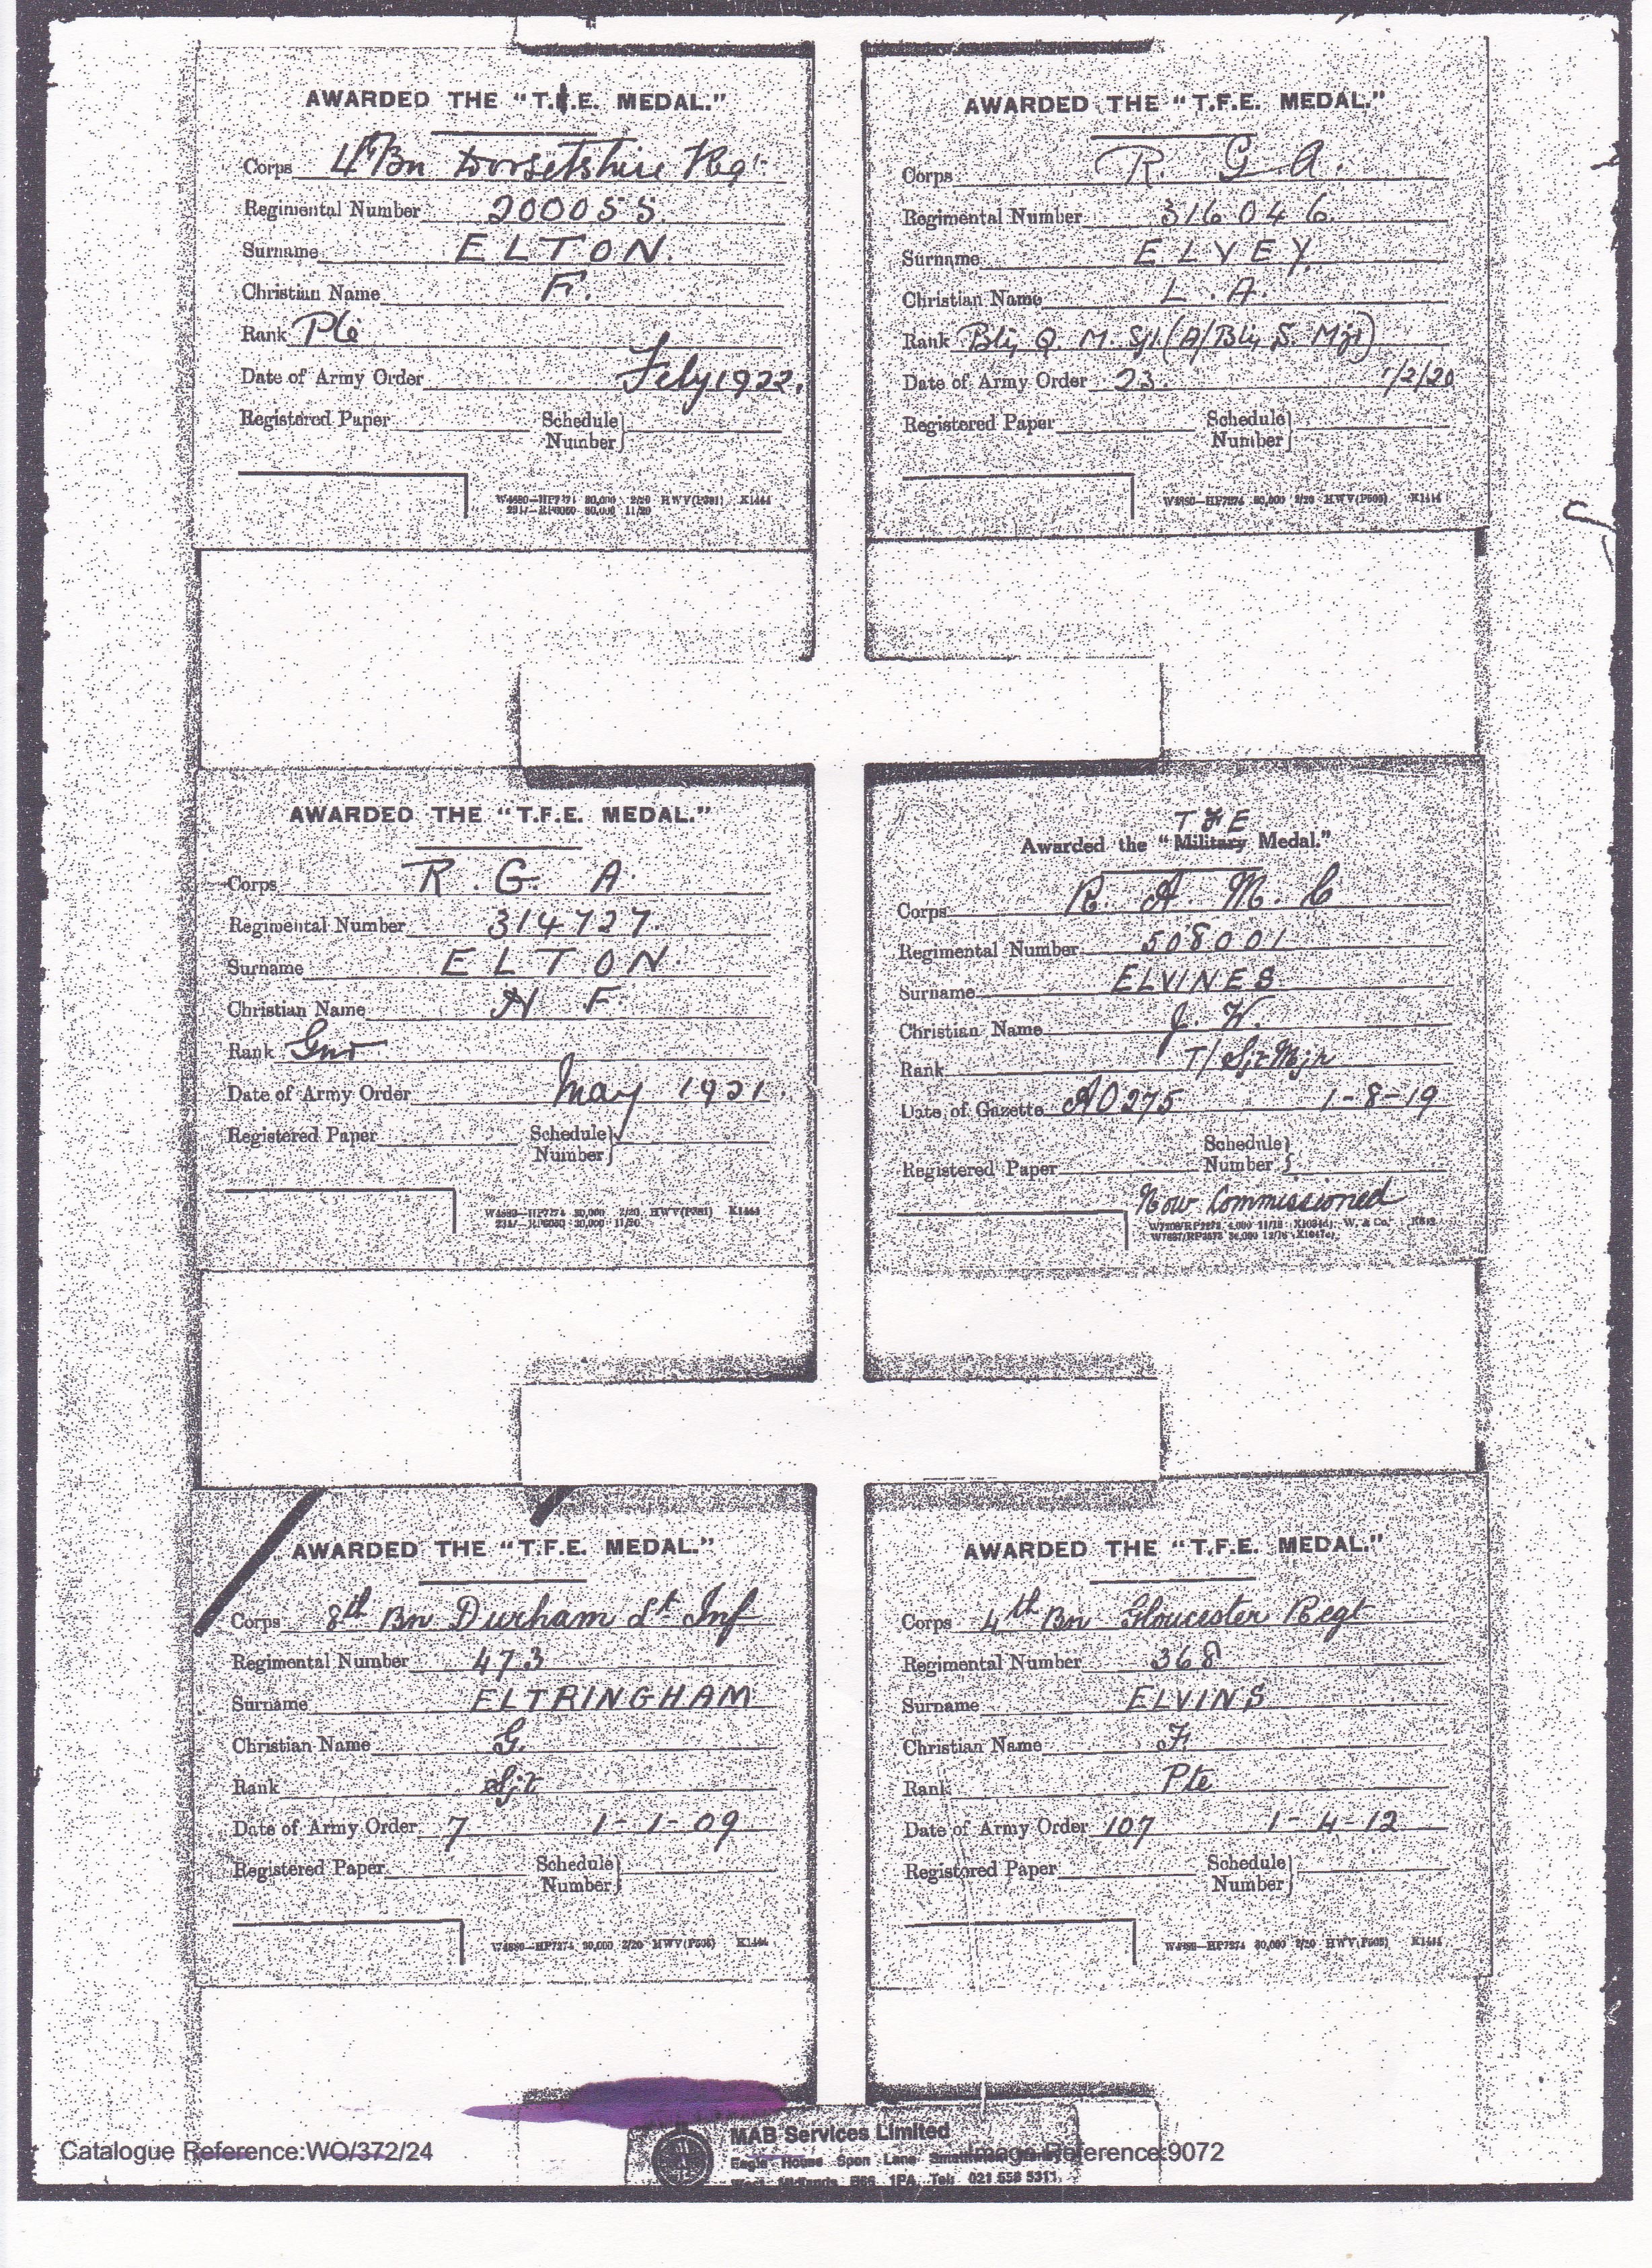 AWARDED THE "T.F.E. MEDAL."
Corps 4th Bn Dorsetshire Regt
Regimental Number 200055.
Surname ELTON.
Christian Name F.
Rank Pte
Date of Army Order Feby 1922.
Registered Paper Schedule Number}
W4680—HP7274 30,000 2/20 HWV(P381) K1464
2317—RP6050 30,000 11/20
AWARDED THE "T.F.E. MEDAL."
Corps R. G. A.
Regimental Number 316046.
Surname ELVEY.
Christian Name L. A.
Rank Bty Q. M. Sjt. (A/Bty S. Mjr)
Date of Army Order 23. 1/2/20
Registered Paper Schedule Number}
W4680—HP7274 30,000 2/20 HWV(P505) K1414
AWARDED THE "T.F.E. MEDAL."
Corps R. G. A.
Regimental Number 314727.
Surname ELTON.
Christian Name H F.
Rank Gnr
Date of Army Order May 1921.
Registered Paper Schedule Number}
W4680—HP7274 30,000 2/20 HWV(P381) K1464
2317—RP6050 30,000 11/20
T F E
Awarded the "Military Medal."
Corps R. A. M. C
Regimental Number 508001
Surname ELVINES.
Christian Name J. W.
Rank T/Sjt Mjr
Date of Gazette AO 275 1-8-19
Registered Paper Schedule Number}
Now Commissioned
AWARDED THE "T.F.E. MEDAL."
Corps 8th Bn Durham Lt Inf
Regimental Number 473
Surname ELTRINGHAM
Christian Name G.
Rank Sjt
Date of Army Order 7 1-1-09
Registered Paper Schedule Number}
W4680—HP7274 30,000 2/20 HWV(P505) K1444
AWARDED THE "T.F.E. MEDAL."
Corps 4th Bn Gloucester Regt
Regimental Number 368
Surname ELVINS
Christian Name F.
Rank Pte
Date of Army Order 107 1-4-12
Registered Paper Schedule Number}
W4680—HP7274 30,000 2/20 HWV(P505) K1444
MAB Services Limited
Eagle House Spon Lane Smethwick
West Midlands B66 1PA Tel: 021 558 5311
Catalogue Reference:WO/372/24
Image Reference:9072